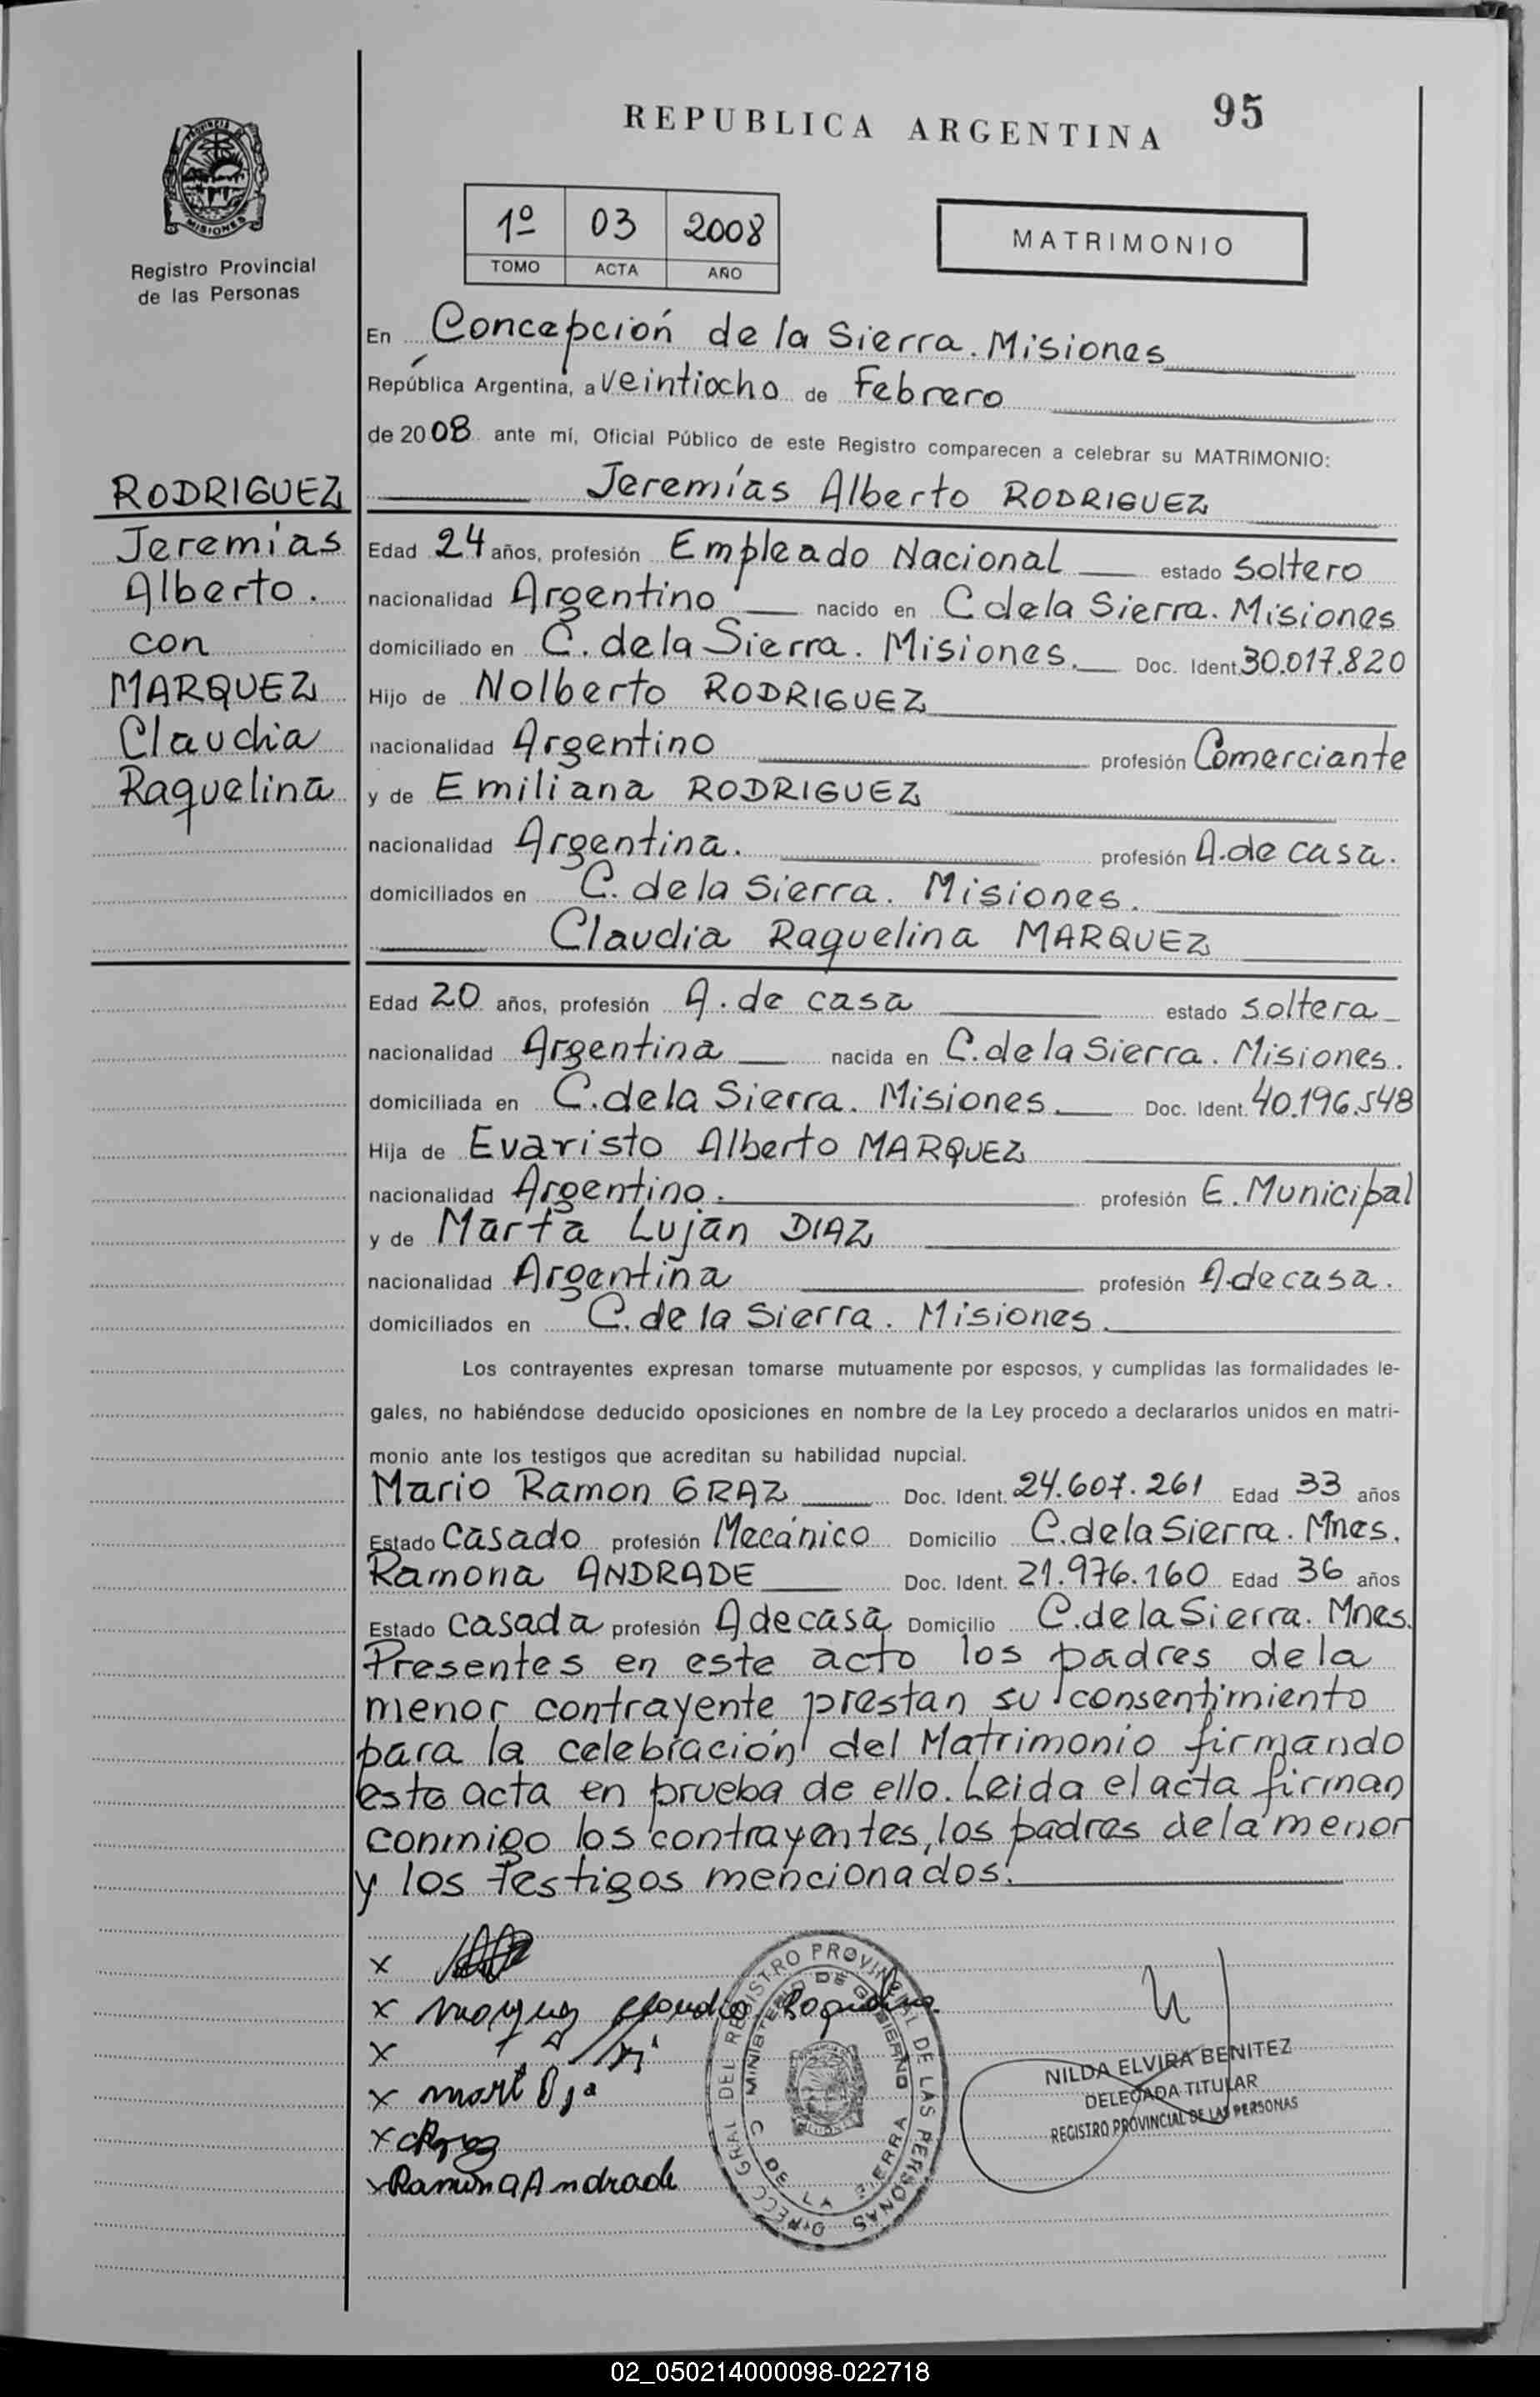 REPUBLICA ARGENTINA
95
PROVINCIA
MISIONES
Registro Provincial
de las Personas
1º 03 2008
TOMO ACTA AÑO
MATRIMONIO
En Concepción de la Sierra. Misiones
República Argentina, a veintiocho de Febrero
de 2008 ante mí, Oficial Público de este Registro comparecen a celebrar su MATRIMONIO:
RODRIGUEZ
Jeremías
Alberto.
con
MARQUEZ
Claudia
Raquelina
Jeremías Alberto RODRIGUEZ
Edad 24 años, profesión Empleado Nacional estado soltero
nacionalidad Argentino nacido en C de la Sierra. Misiones
domiciliado en C. de la Sierra. Misiones. Doc. Ident. 30.017.820
Hijo de Nolberto RODRIGUEZ
nacionalidad Argentino profesión Comerciante
y de Emiliana RODRIGUEZ
nacionalidad Argentina. profesión A. de casa.
domiciliados en C. de la Sierra. Misiones.
Claudia Raquelina MARQUEZ
Edad 20 años, profesión A. de casa estado soltera
nacionalidad Argentina nacida en C. de la Sierra. Misiones.
domiciliada en C. de la Sierra. Misiones. Doc. Ident. 40.196.548
Hija de Evaristo Alberto MARQUEZ
nacionalidad Argentino. profesión E. Municipal
y de Marta Luján DIAZ
nacionalidad Argentina profesión A. de casa.
domiciliados en C. de la Sierra. Misiones.
Los contrayentes expresan tomarse mutuamente por esposos, y cumplidas las formalidades le-
gales, no habiéndose deducido oposiciones en nombre de la Ley procedo a declararlos unidos en matri-
monio ante los testigos que acreditan su habilidad nupcial.
Mario Ramon GRAZ Doc. Ident. 24.607.261 Edad 33 años
Estado Casado profesión Mecánico Domicilio C. de la Sierra. Mnes.
Ramona ANDRADE Doc. Ident. 21.976.160 Edad 36 años
Estado casada profesión A de casa Domicilio C. de la Sierra. Mnes.
Presentes en este acto los padres de la
menor contrayente prestan su consentimiento
para la celebración del Matrimonio firmando
esta acta en prueba de ello. Leida el acta firman
conmigo los contrayentes, los padres de la menor
y los testigos mencionados.
x
x Marquez Claudia Raquelina
x
x
x
x Ramona Andrade
DIRECC GRAL DEL REGISTRO PROVINCIAL DE LAS PERSONAS
MINISTERIO DE GOBIERNO
C DE LA SIERRA
NILDA ELVIRA BENITEZ
DELEGADA TITULAR
REGISTRO PROVINCIAL DE LAS PERSONAS
02_050214000098-022718